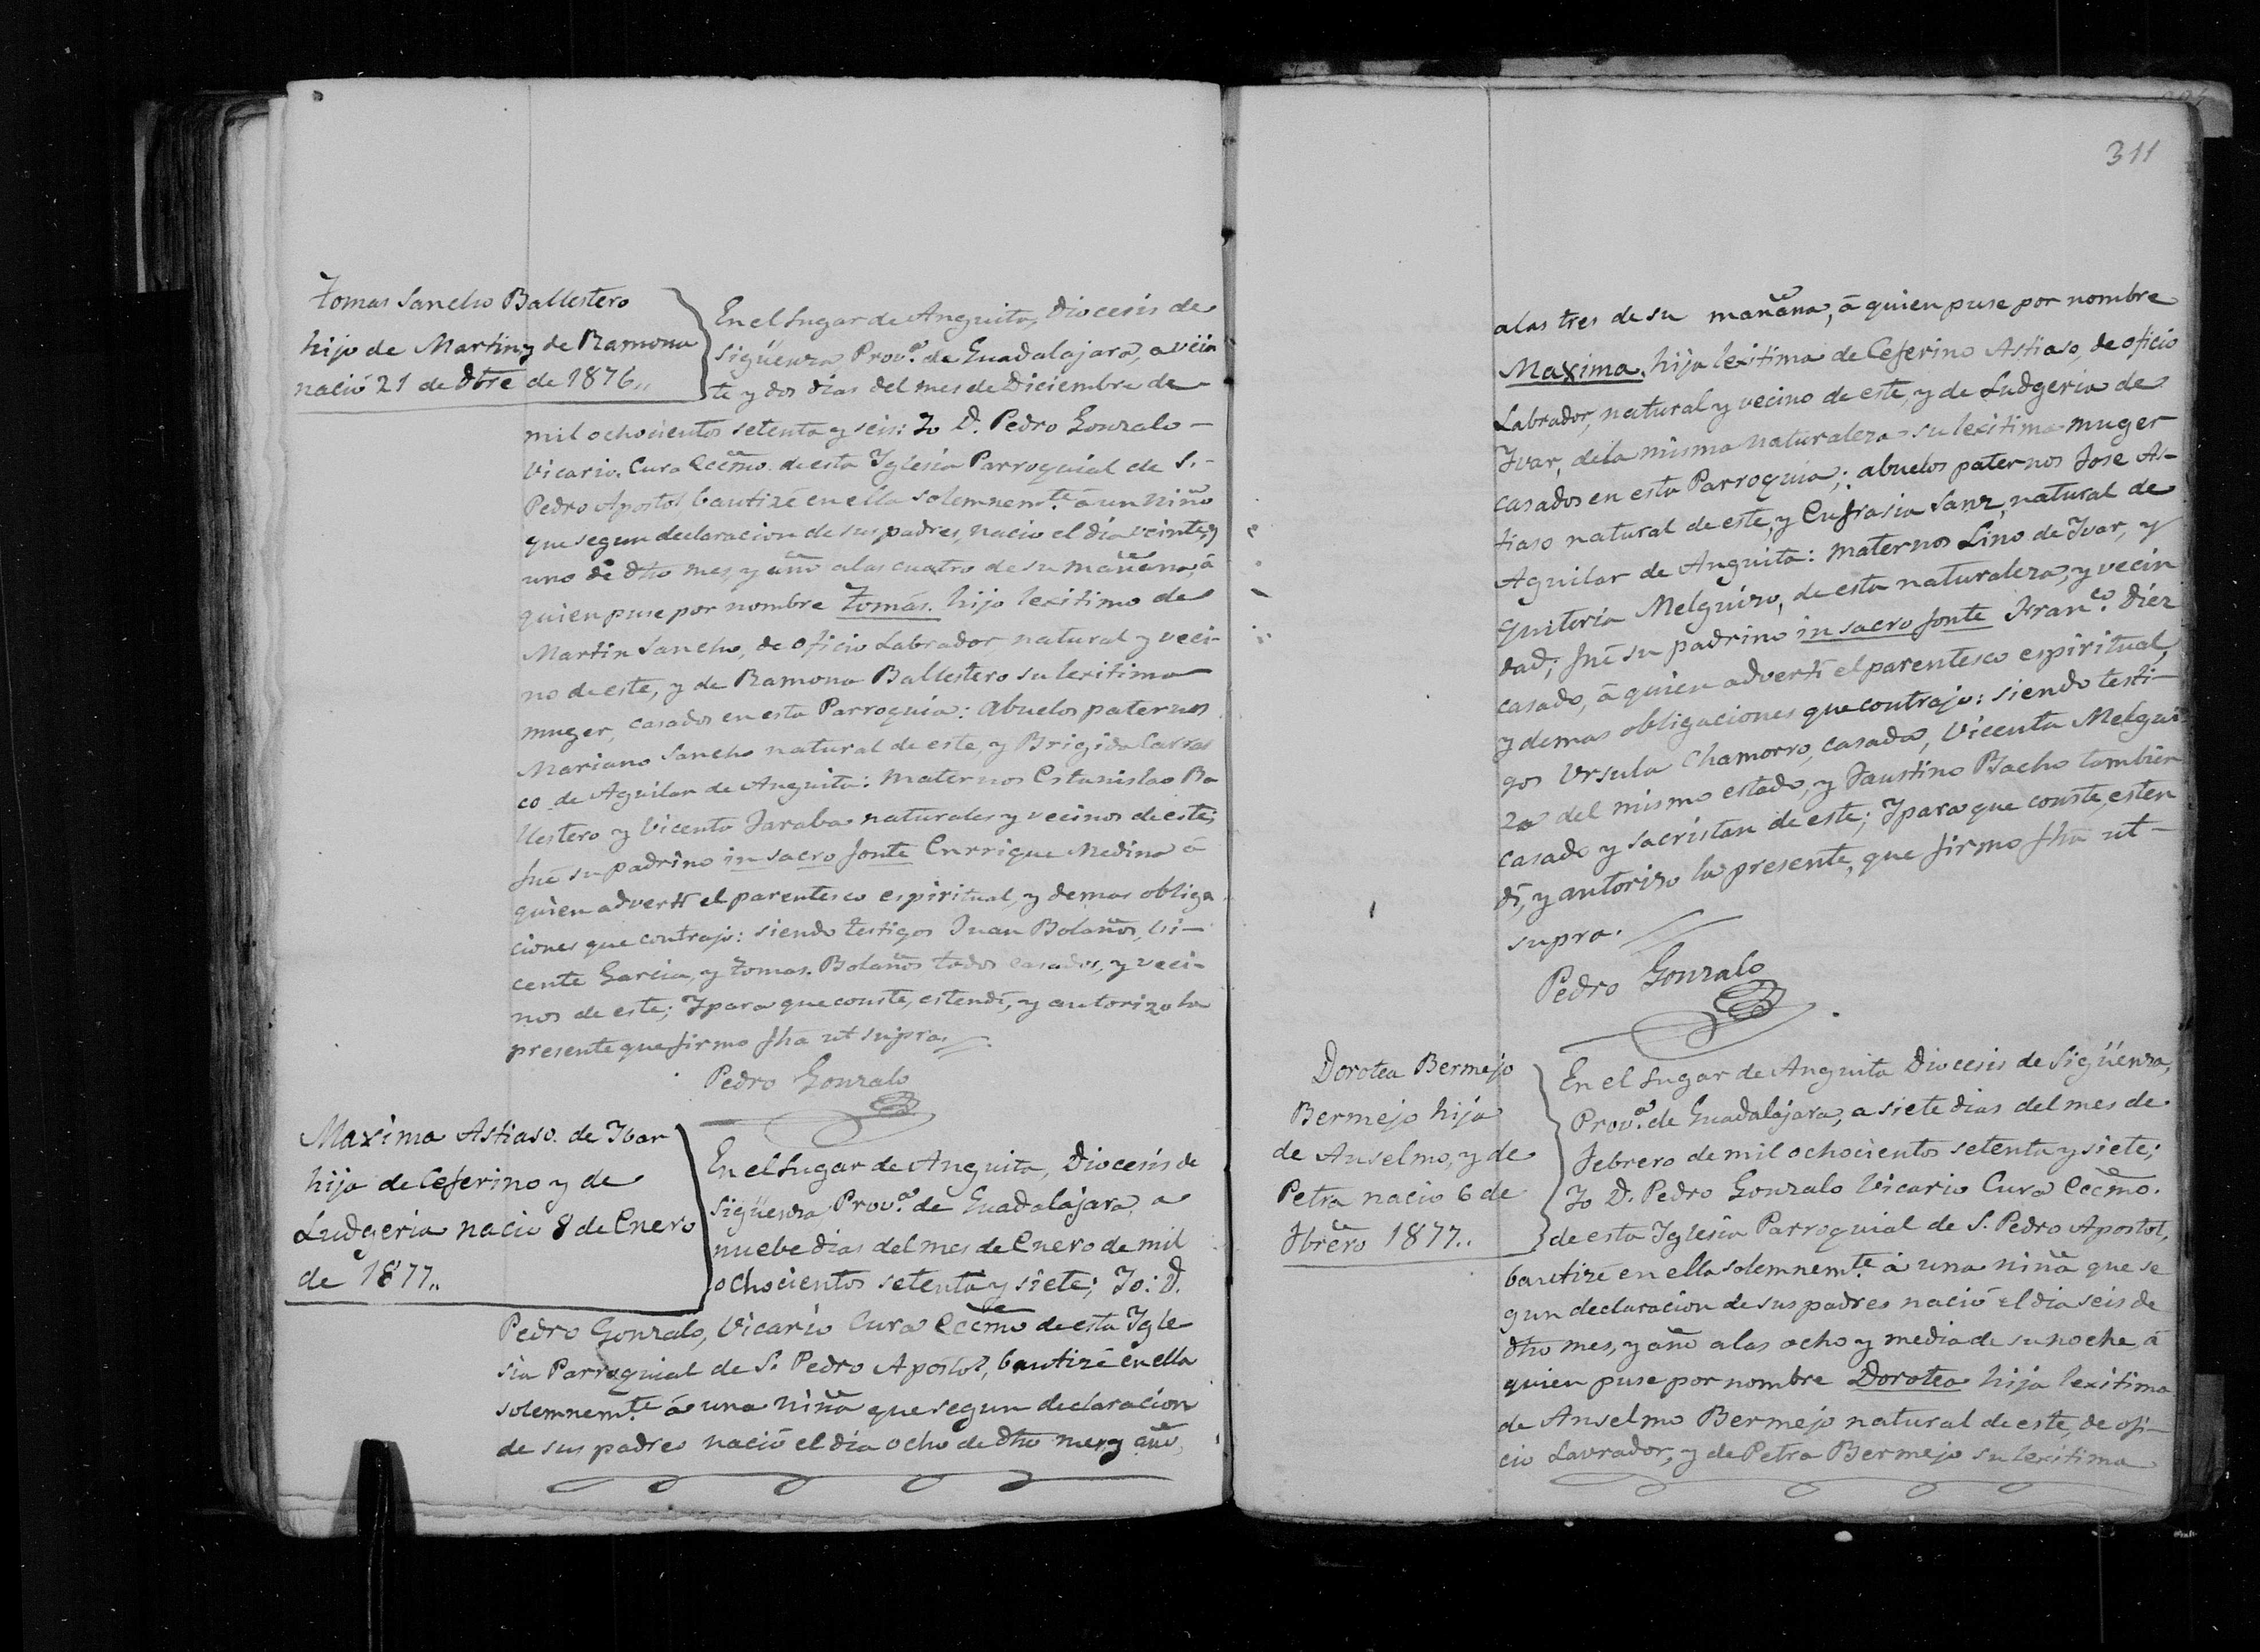 Tomas Sancho Ballestero
hijo de Martin y de Ramona
nació 21 de Dbre de 1876,,
En el Lugar de Anguita, Diocesis de
Sigüenza, Prov.ª de Guadalajara, a vein
te y dos dias del mes de Diciembre de
mil ochocientos setenta y seis: Yo D. Pedro Gonzalo
Vicario, Cura Eccmo. de esta Yglesia Parroquial de S.
Pedro Apostol bautizé en ella solemnem.te á un niño
que segun declaracion de sus padres, nacio el dia veinte y
uno de dho mes, y año a las cuatro de su mañana, á
quien puse por nombre Tomás. hijo lexitimo de
Martin Sancho, de oficio Labrador, natural y veci-
no de este, y de Ramona Ballestero su lexitima
muger, casados en esta Parroquia: abuelos paternos
Mariano Sancho natural de este, y Brigida Carras
co de Aguilar de Anguita: maternos Estanislao Ba
llestero y Vicenta Jaraba naturales y vecinos de este;
fué su padrino in sacro fonte Enrrique Medina á
quien advertí el parentesco espiritual, y demas obliga
ciones que contrajo: siendo testigos Juan Bolaños, Vi-
cente Garcia, y Tomas. Bolaños todos casados, y veci-
nos de este; Y para que conste, estendí, y autorizo la
presente que firmo fha ut supra.
Pedro Gonzalo
Maxima Astiaso. de Ybar
hija de Ceferino y de
Ludgeria nacio 8 de Enero
de 1877,,
En el Lugar de Anguita, Diocesis de
Sigüenza, Prov.ª de Guadalajara, a
nuebe dias del mes de Enero de mil
ochocientos setenta y siete; Yo: D.
Pedro Gonzalo, Vicario Cura Eccmo de esta Ygle
sia Parroquial de S. Pedro Apostol, bautizé en ella
solemnem.te á una niña que segun declaracion
de sus padres nació el dia ocho de dho mes y año,
311
a las tres de su mañana, á quien puse por nombre
Maxima, hija lexitima de Ceferino Astiaso, de oficio
Labrador, natural y vecino de este, y de Ludgeria de
Yvar, de la misma naturaleza su lexitima muger
casados en esta Parroquia; abuelos paternos Jose As-
tiaso natural de este, y Eufrasia Sanz, natural de
Aguilar de Anguita: maternos Lino de Yvar, y
Quiteria Melguizo, de esta naturaleza, y vecin
dad; fué su padrino in sacro fonte Fran.co Diez
casado, á quien advertí el parentesco espiritual,
y demas obligaciones que contrajo: siendo testi-
gos Ursula Chamorro, casada, Vicenta Melgui
zo del mismo estado, y Faustino Bacho tambien
casado y sacristan de este; Y para que conste, esten
dí, y autorizo la presente, que firmo fha ut
supra.
Pedro Gonzalo
Dorotea Bermejo
Bermejo hija
de Anselmo, y de
Petra nacio 6 de
Fbrero 1877..
En el Lugar de Anguita Diocesis de Sigüenza,
Prov.ª de Guadalajara, a siete dias del mes de
Febrero de mil ochocientos setenta y siete;
Yo D. Pedro Gonzalo Vicario Cura Eccmo.
de esta Yglesia Parroquial de S. Pedro Apostol,
bautizé en ella solemnem.te á una niña que se
gun declaracion de sus padres nació el dia seis de
dho mes, y año a las ocho y media de su noche, á
quien puse por nombre Dorotea hija lexitima
de Anselmo Bermejo natural de este, de ofi-
cio Lavrador, y de Petra Bermejo su lexitima